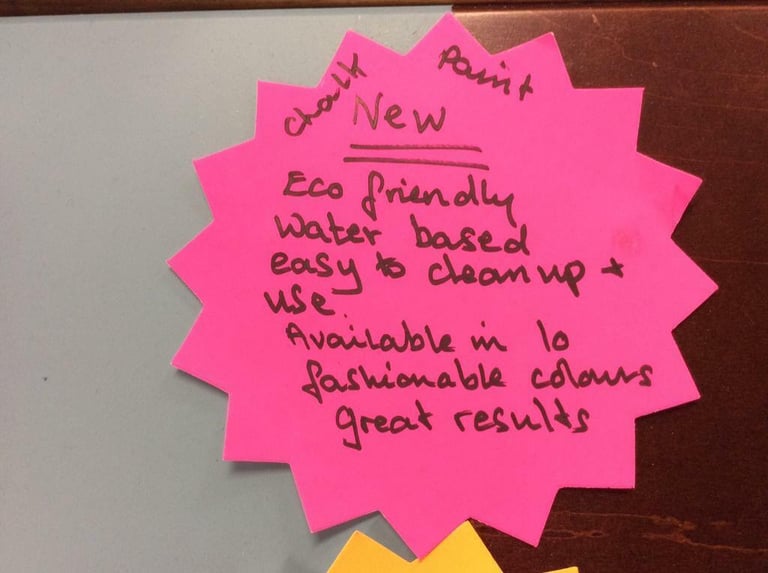 Chalk Paint
New
Eco friendly
Water based
easy to clean up +
use
Available in 10
fashionable colours
great results